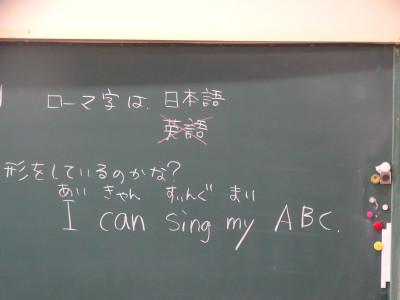 ローマ字は、日本語
英語
形をしているのかな?
あい きゃん すぃんぐ まい
I can sing my ABC.